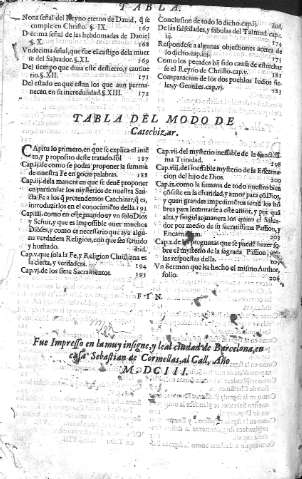 TABLA.
Nona señal del Reyno eterno de Dauid, q̃ se
cumple en Christo. §. IX. 167
Decima señal de las hebdomadas de Daniel
§. X. 168
Vndecima señal, que fue el castigo de la muerte
del Saluador. §. XI. 169
Del tiempo que dura este destierro, y cautiuerio.
§. XII 171
Del estado en que están los que aun permanecen
en su incredulidad §. XIII. 172
Conclusion de todo lo dicho. cap.
De las falsedades, y fabulas del Talmud. cap.
Respondese a algunas objectiones acerca de
lo dicho. cap.
Como los pecados hã sido causa de
el Reyno de Christo. cap. v.
Comparacion de los dos pueblos Iudios fieles,
y Gentiles. cap. vj.
TABLA DEL MODO DE
Catechizar.
Capitulo primero, en que se explica el intẽto,
y proposito deste tratado. fol
Cap. ij. de como se podra proponer la summa
de nuestra Fe en pocas palabras. 188
Cap. iij. de la manera en que se deuẽ proponer
en particular los mysterios de nuestra Santa
Fe a los q̃ pretendemos Catechizar, q̃ es,
introduzirlos en el conocimiẽto della. 191
Cap. iiij. como en este mundo y vn solo Dios
y Señor, y que es impossible auer muchos
Dioses, y como es necessario que aya alguna
verdadera Religion, con que sea seruido
y honrado. ibid.
Cap. v. que sola la Fe, y Religion Christiana es
la cierta, y verdadera. 194
Cap. vj. de los siete Sacramentos. 195
Cap. vij. del mysterio ineffable de la sanctissima
Trinidad. 198
Cap. viij. del ineffable mysterio de la Encarnacion
del hijo de Dios.
Cap. ix. como la summa de todo nuestro bien
consiste en la charidad, y amor para cõ Dios,
y quan grandes impossibles
para leuantarse a este amor, y por quã
alta, y singular manera los quitò el Saluador
por medio de su sacratissima Passion, y
Encarnacion. 203
Cap. x. de las preguntas que se puedẽ hazer sobre
el mysterio de la sagrada Passion, y
respuestas dellas. 205
Vn Sermon que ha hecho el mismo Author,
folio. 206
FIN.
Fue Impresso en la muy insigne, y leal ciudad de Barcelona, en
casa Sebastian de Cormellas, al Call, Año
M. DCIII.